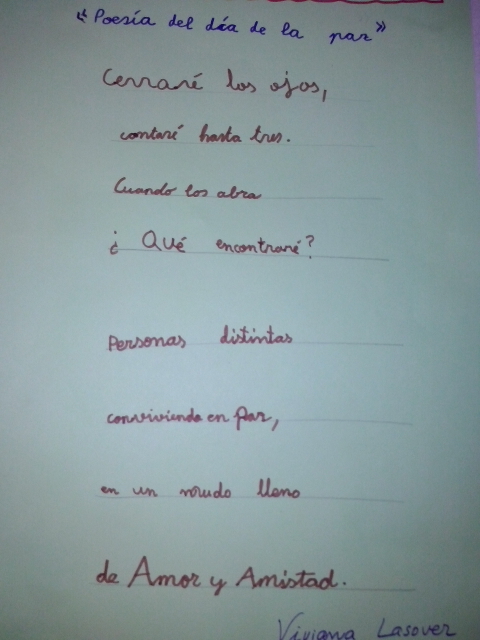 "Poesía del día de la paz"
Cerraré los ojos,
contaré hasta tres.
Cuando los abra
¿Qué encontraré?
Personas distintas
conviviendo en paz,
en un mundo lleno
de Amor y Amistad.
Viviana Lasover